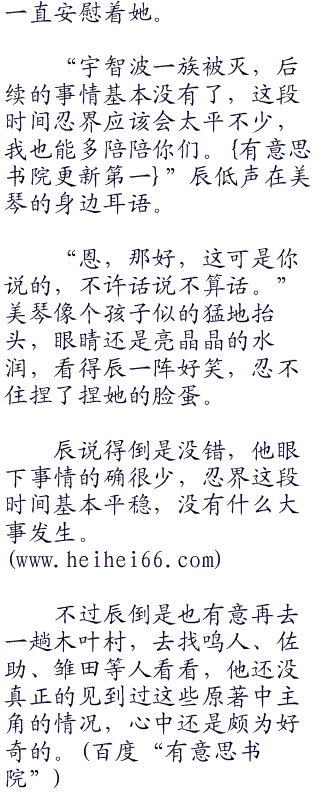 一直安慰着她。
“宇智波一族被灭，后
续的事情基本没有了，这段
时间忍界应该会太平不少，
我也能多陪陪你们。{有意思
书院更新第一}”辰低声在美
琴的身边耳语。
“恩，那好，这可是你
说的，不许话说不算话。”
美琴像个孩子似的猛地抬
头，眼睛还是亮晶晶的水
润，看得辰一阵好笑，忍不
住捏了捏她的脸蛋。
辰说得倒是没错，他眼
下事情的确很少，忍界这段
时间基本平稳，没有什么大
事发生。
(www.heihei66.com)
不过辰倒是也有意再去
一趟木叶村，去找鸣人、佐
助、雏田等人看看，他还没
真正的见到过这些原著中主
角的情况，心中还是颇为好
奇的。(百度“有意思书
院”)